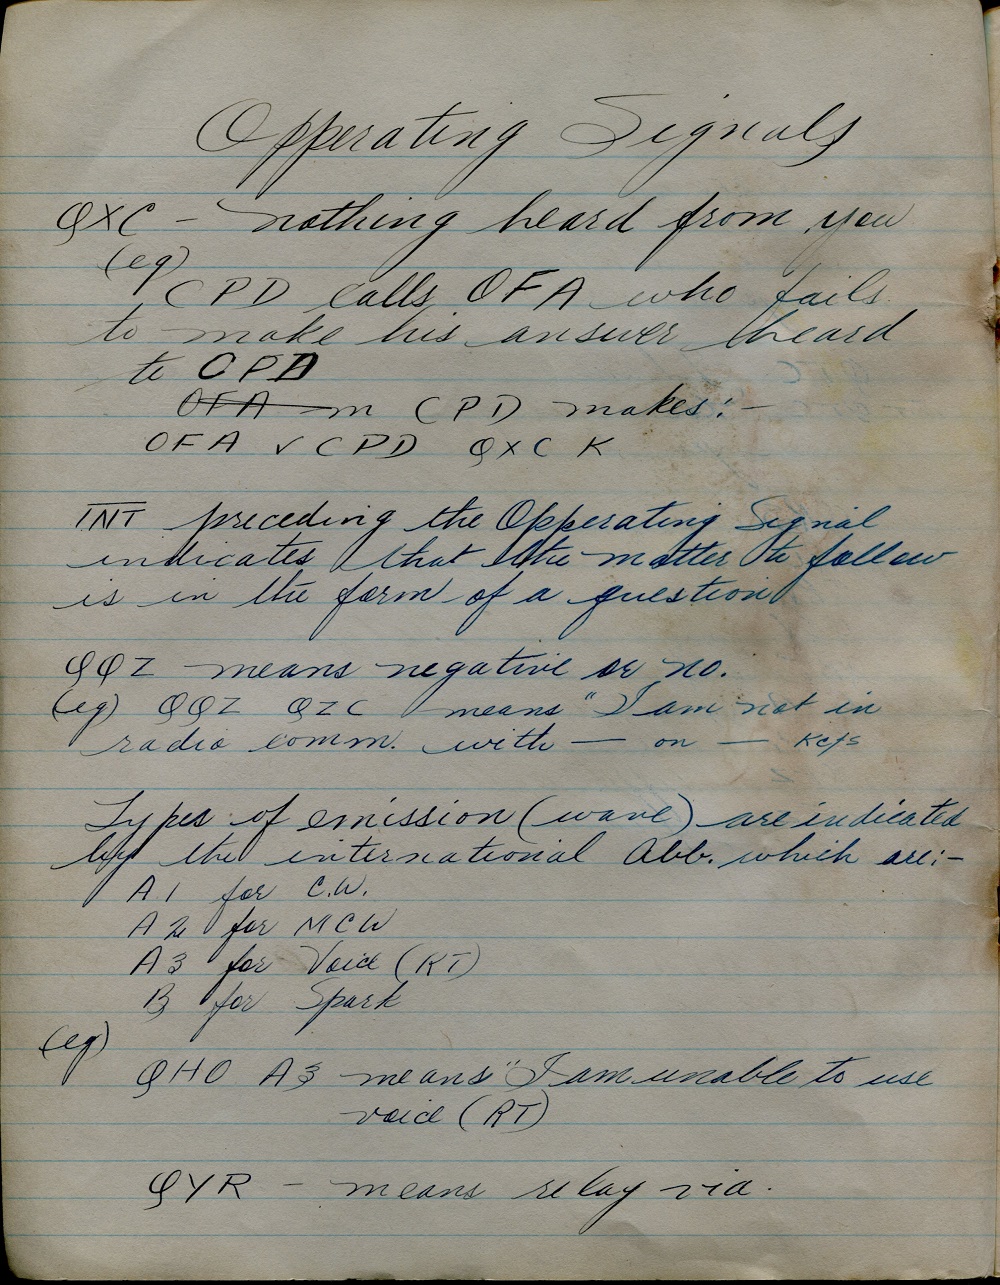 Opperating Signals
QXC - nothing heard from you
(eg)
CPD calls OFA who fails
to make his answer heard
to CPD
OFA m CPD makes:-
OFA V CPD QXC K
INT preceding the Opperating Signal
indicates that the matter to follow
is in the form of a question
QQZ means negative or no.
(eg) QQZ QZC means "I am not in
radio comm. with — on — Kc/s
Types of emission (wave) are indicated
by the international Abb. which are:-
A1 for C.W.
A2 for MCW
A3 for Voice (RT)
B for Spark
(eg)
QHO A3 means "I am unable to use
voice (RT)
QYR - means relay via.